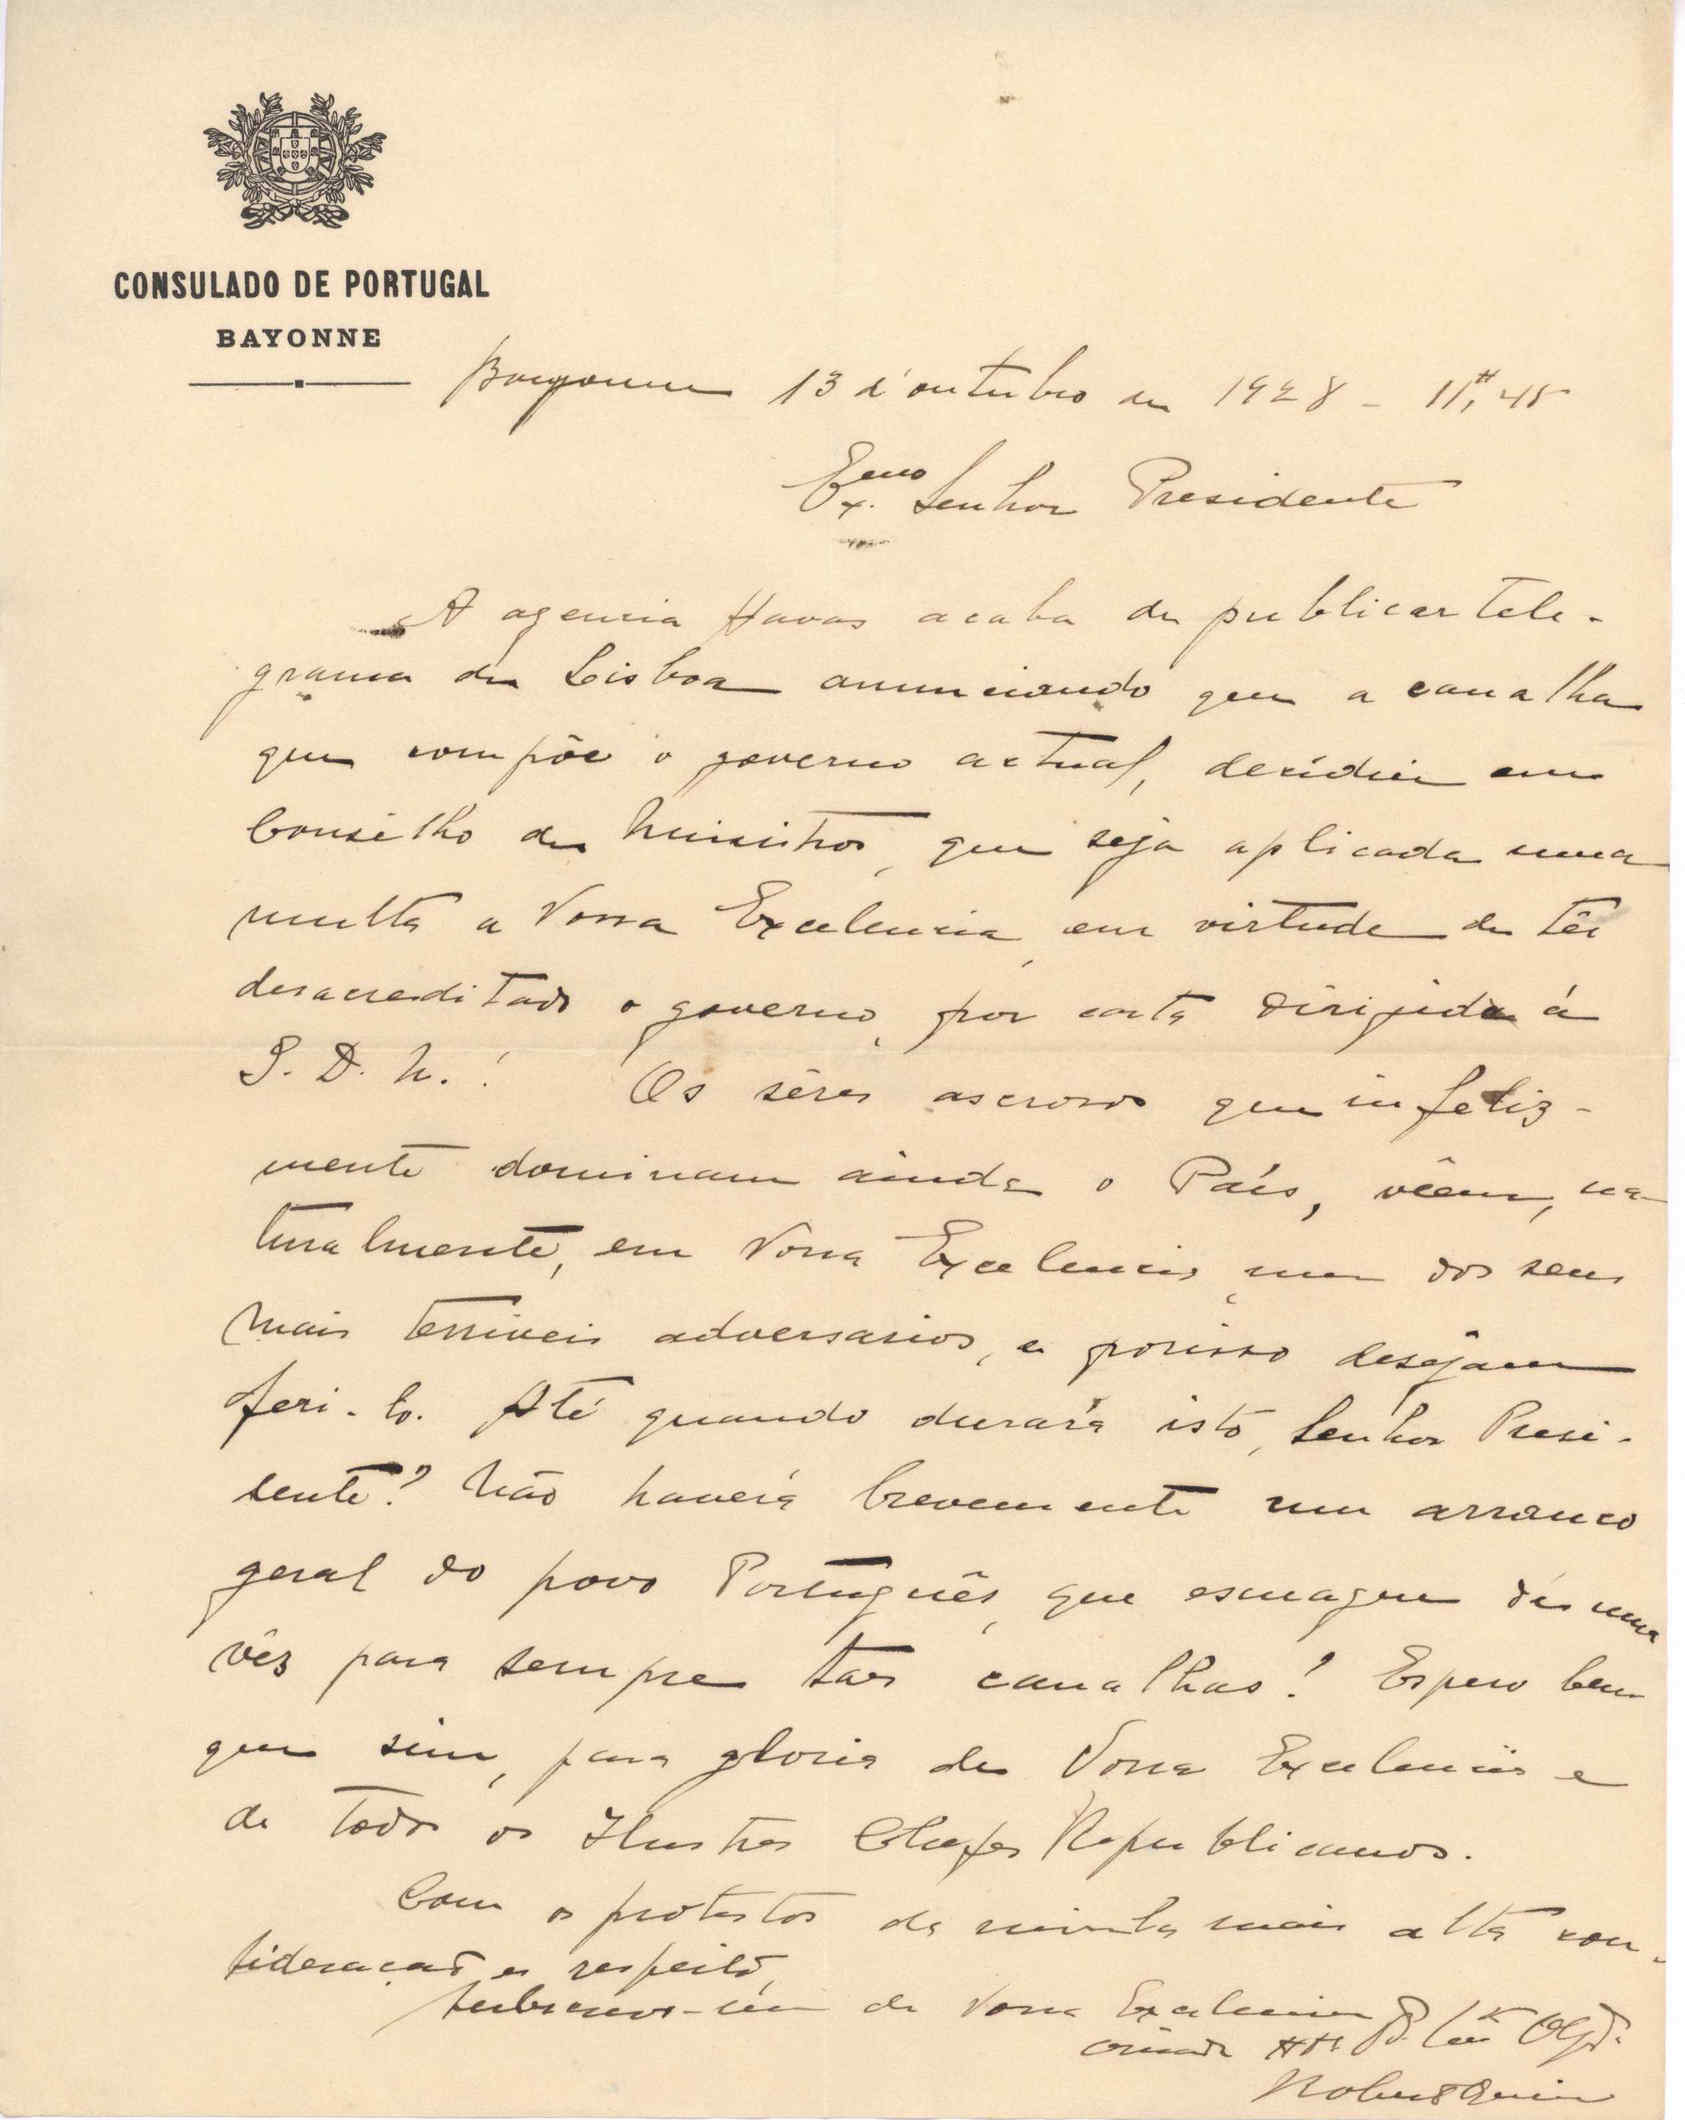 CONSULADO DE PORTUGAL
BAYONNE
Bayonne 13 d'outubro de 1928 - 11H,45
Exmo. Senhor Presidente
A agencia Havas acaba de publicar tele-
grama de Lisboa anunciando que a canalha
que compõe o governo actual, decidiu em
Conselho de Ministros, que seja aplicada uma
multa a Vossa Excelencia, em virtude de têr
desacreditado o governo, por carta dirijida á
S. D. N. !   Os sêres ascrosos que infeliz-
mente dominam ainda o País, vêem, na
turalmente, em Vossa Excelencia, um dos seus
mais terriveis adversarios, e porisso desejam
feri-lo. Até quando durará isto, Senhor Presi-
dente? Não haverá brevemente um arranco
geral do povo Português, que esmague duma
vêz para sempre tais canalhas? Espero bem
que sim, para gloria de Vossa Excelencia e
de todos os Ilustres Chefes Republicanos.
Com os protestos da minha mais alta con-
sideração e respeito,
subscrevo-me de Vossa Excelencia
criado